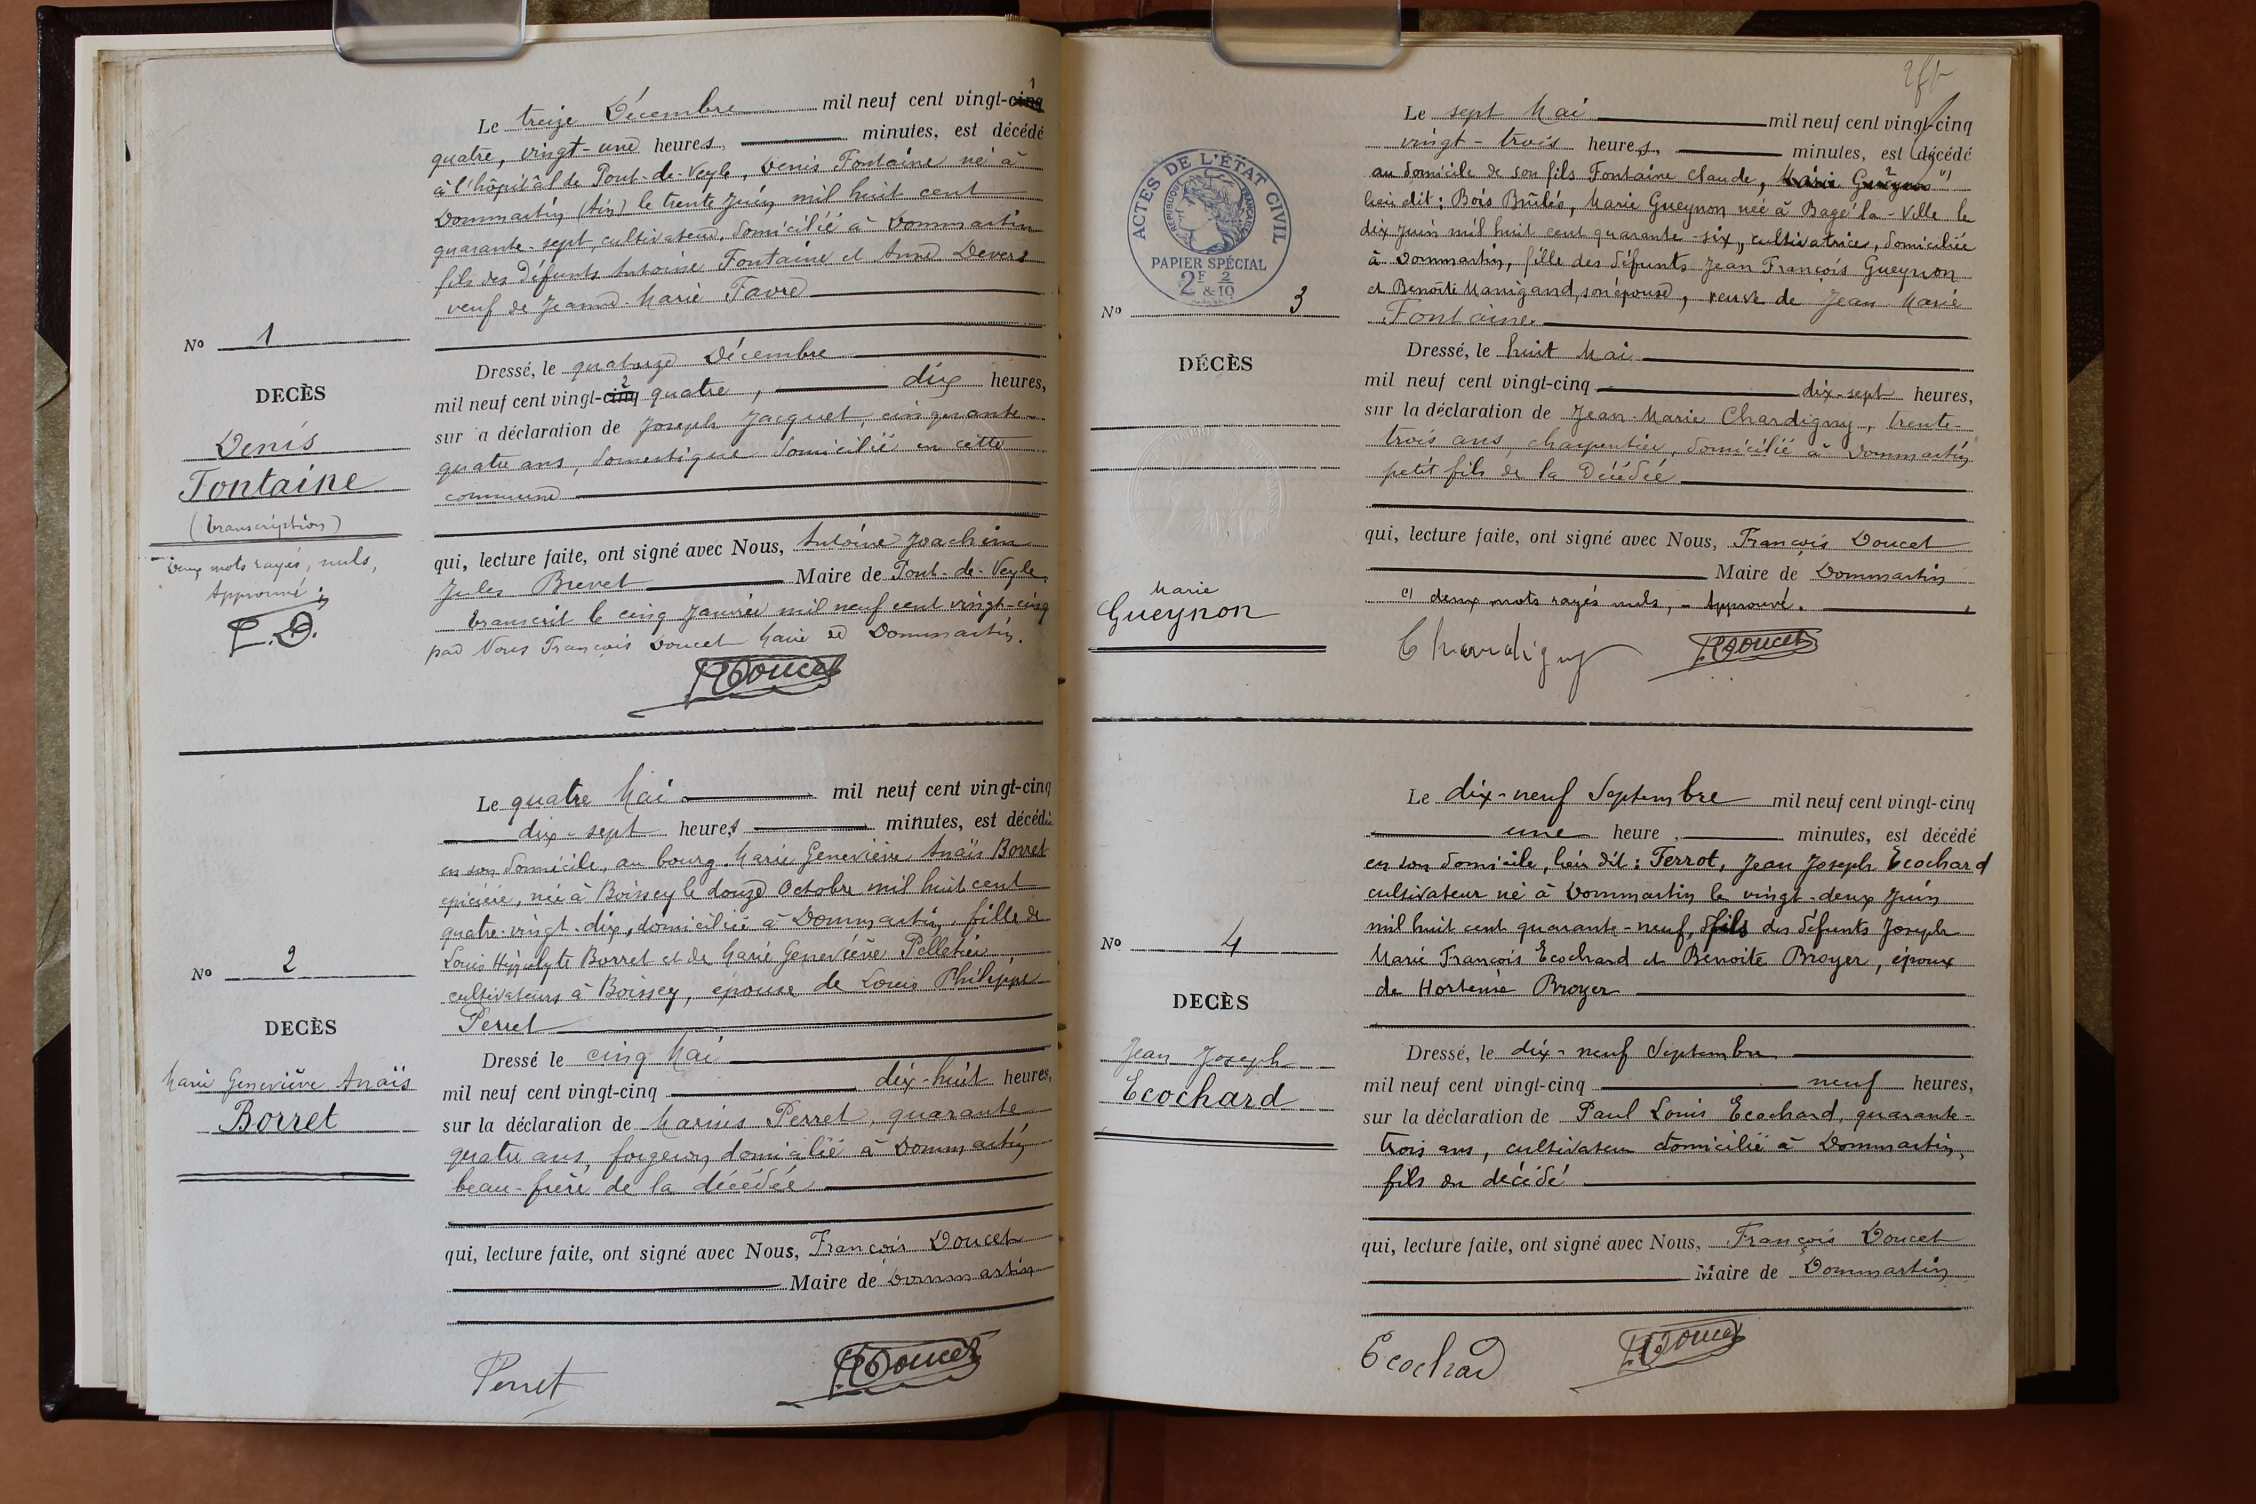 Le treize Décembre mil neuf cent vingt-cinq
quatre, vingt-une heures, minutes, est décédé
à l'hôpitâl de Pont-de-Veyle, Denis Fontaine né à
Dommartin (Ain) le trente Juin mil huit cent
quarante-sept, cultivateur, domicilié à Dommartin
fils des défunts Antoine Fontaine et Anne Devers
veuf de Jeanne-Marie Favre
No 1
DECÈS
Denis
Fontaine
(transcription)
Deux mots rayés, nuls,
Approuvé :
F. D.
Dressé, le quatorze Décembre
mil neuf cent vingt-cinq quatre, dix heures,
sur a déclaration de Joseph Jacquet, cinquante
quatre ans, domestique domicilié en cette
commune
qui, lecture faite, ont signé avec Nous, Antoine Joachim
Jules Brevet Maire de Pont-de-Veyle
transcrit le cinq Janvier mil neuf cent vingt-cinq
par Nous François Doucet Maire de Dommartin.
F. Doucet
Le quatre Mai mil neuf cent vingt-cinq
dix-sept heures minutes, est décédée
en son domicile, au bourg, Marie Geneviève Anaïs Borret
épicière, née à Boissey le douze Octobre mil huit cent
quatre-vingt-dix, domiciliée à Dommartin, fille de
Louis Hippolyte Borret et de Marie Geneviève Pelletier
cultivateurs à Boissey, épouse de Louis Philippe
Perret
No 2
DECÈS
Marie Geneviève Anaïs
Borret
Dressé le cinq Mai
mil neuf cent vingt-cinq dix-huit heures,
sur la déclaration de Marius Perret, quarante
quatre ans, forgeron, domicilié à Dommartin
beau-frère de la décédée
qui, lecture faite, ont signé avec Nous, François Doucet
Maire de Dommartin
Perret F. Doucet
Le sept Mai mil neuf cent vingt-cinq
vingt-trois heures, minutes, est décédé
au domicile de son fils Fontaine Claude, Marie Gueynon (1)
lieu dit : Bois Brûlés, Marie Gueynon née à Bagé-la-Ville le
dix Juin mil huit cent quarante-six, cultivatrice, domiciliée
à Dommartin, fille des défunts Jean François Gueynon
et Benoîte Manigand, son épouse, veuve de Jean Marie
Fontaine.
ACTES DE L'ÉTAT CIVIL
RÉPUBLIQUE FRANÇAISE
PAPIER SPÉCIAL
2F & 2/10
No 3
DÉCÈS
Marie
Gueynon
Dressé, le huit Mai
mil neuf cent vingt-cinq dix-sept heures,
sur la déclaration de Jean-Marie Chardigny, trente-
trois ans, charpentier, domicilié à Dommartin
petit fils de la Décédée
qui, lecture faite, ont signé avec Nous, François Doucet
Maire de Dommartin
(1) deux mots rayés nuls, - Approuvé.
Chardigny F. Doucet
Le dix-neuf Septembre mil neuf cent vingt-cinq
une heure, minutes, est décédé
en son domicile, lieu dit : Ferrot, Jean Joseph Ecochard
cultivateur né à Dommartin le vingt-deux Juin
mil huit cent quarante-neuf, fils des défunts Joseph
Marie François Ecochard et Benoîte Broyer, époux
de Hortense Broyer
No 4
DECÈS
Jean Joseph
Ecochard
Dressé, le dix-neuf Septembre
mil neuf cent vingt-cinq neuf heures,
sur la déclaration de Paul Louis Ecochard, quarante-
trois ans, cultivateur domicilié à Dommartin,
fils du décédé
qui, lecture faite, ont signé avec Nous, François Doucet
Maire de Dommartin
Ecochard F. Doucet